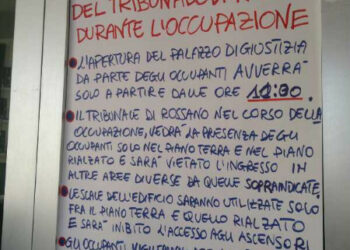 DEL TRIBUNALE DI
DURANTE L'OCCUPAZIONE
• L'APERTURA DEL PALAZZO DI GIUSTIZIA
DA PARTE DEGLI OCCUPANTI AVVERRÀ
SOLO A PARTIRE DALLE ORE 12:00.
• IL TRIBUNALE DI ROSSANO NEL CORSO DELLA
OCCUPAZIONE, VEDRÀ LA PRESENZA DEGLI
OCCUPANTI SOLO NEL PIANO TERRA E NEL PIANO
RIALZATO E SARÀ VIETATO L'INGRESSO IN
ALTRE AREE DIVERSE DA QUELLE SOPRAINDICATE.
• LE SCALE DELL'EDIFICIO SARANNO UTILIZZATE SOLO
FRA IL PIANO TERRA E QUELLO RIALZATO
E SARÀ INIBITO L'ACCESSO AGLI ASCENSORI
• GLI OCCUPANTI